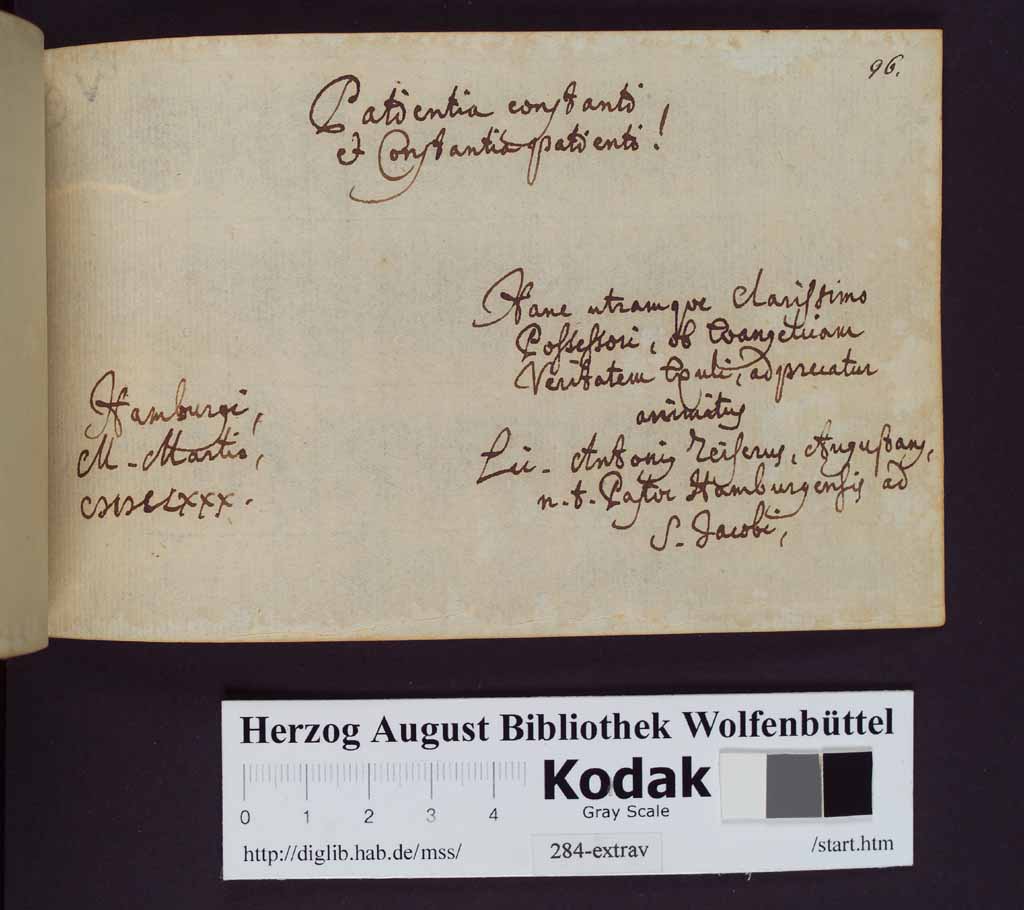 96.
Patientia constanti
et Constantia patienti!
Hanc utramque Clarissimo
Possessori, ob Evangelicam
Veritatem Exuli, adprecatur
animitus
Lic. Antonius Reiserus, Augustanus,
n. t. Pastor Hamburgensis ad
S. Jacobi,
Hamburgi,
M. Martio,
Herzog August Bibliothek Wolfenbüttel
0 1 2 3 4
Kodak
Gray Scale
http://diglib.hab.de/mss/
284-extrav
/start.htm